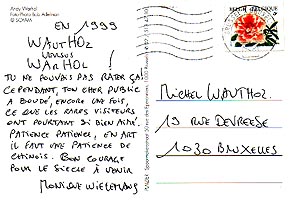 Andy Warhol
Foto Photo Bob Adelman
© SOFAM
EN 1999
WAUTHOZ
VERSUS
WARHOL !
TU NE POUVAIS PAS RATER ÇA!
CEPENDANT, TON CHER PUBLIC
A BOUDÉ, ENCORE UNE FOIS,
CE QUE LES RARES VISITEURS
ONT POURTANT SI BIEN AIMÉ.
PATIENCE PATIENCE, EN ART
IL FAUT UNE PATIENCE DE
CHINOIS. BON COURAGE
POUR LE SIÈCLE À VENIR
MONIQUE
BELGIQUE
MICHEL WAUTHOZ.
19 RUE DEVREESE
1030 BRUXELLES